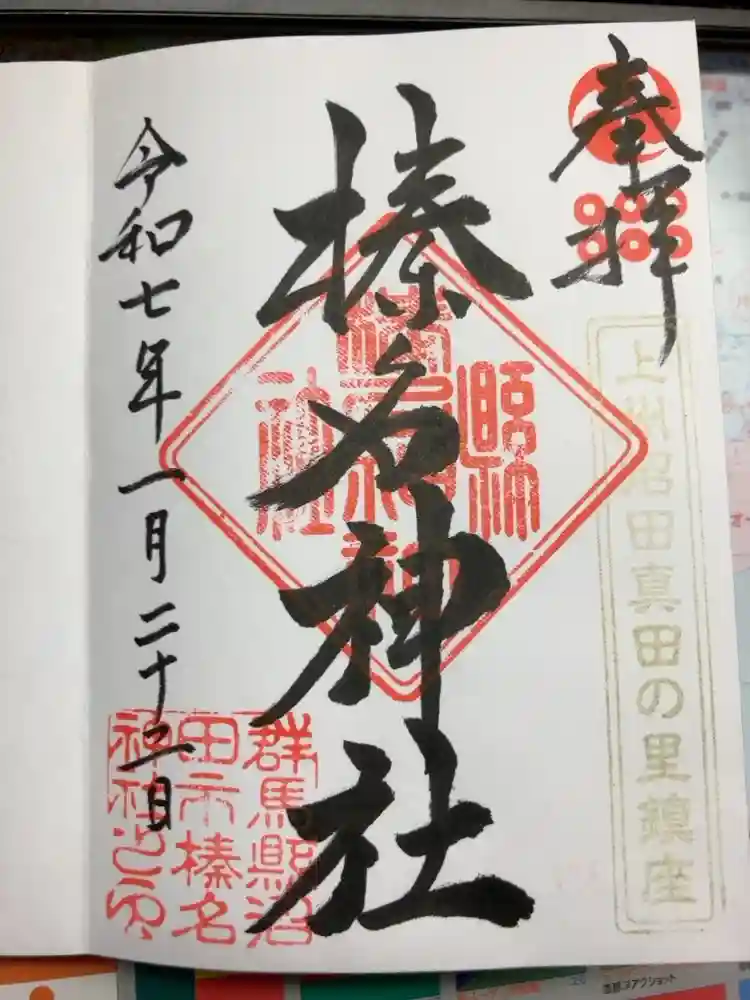 奉拝
上州沼田真田の里鎮座
榛名神社
群馬縣沼
田市榛名
神社之印
令和七年一月二十二日